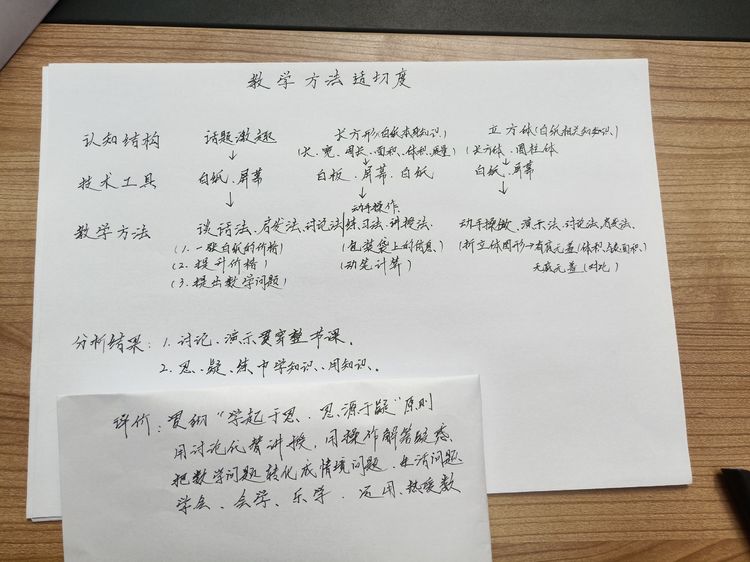 教学方法适切度
认知结构 话题激趣 长方形(白纸本身知识) 立方体(白纸相关知识)
(长、宽、周长、面积、体积、质量) (长方体、圆柱体
↓ ↓ ↓
技术工具 白纸、屏幕 白板、屏幕、白纸 白纸、屏幕
↓ ↓ 动手操作、 ↓
教学方法 谈话法、启发法、讨论法 练习法、讲授法、 动手操做、演示法、讨论法、启发法、
(1.一张白纸的价格) (包装袋上的信息、 (折立体图形→有底无盖(体积、表面积、)
(2.提升价格) (动笔计算) 无底无盖(对比)
(3.提出数学问题)
分析结果:1.讨论、演示贯穿整节课、
2.思、疑、练中学知识、用知识、
评价:贯彻“学起于思、思源于疑”原则
用讨论代替讲授,用操作解答疑惑
把数学问题转化成情境问题、生活问题
学会、会学、乐学、运用、热爱数